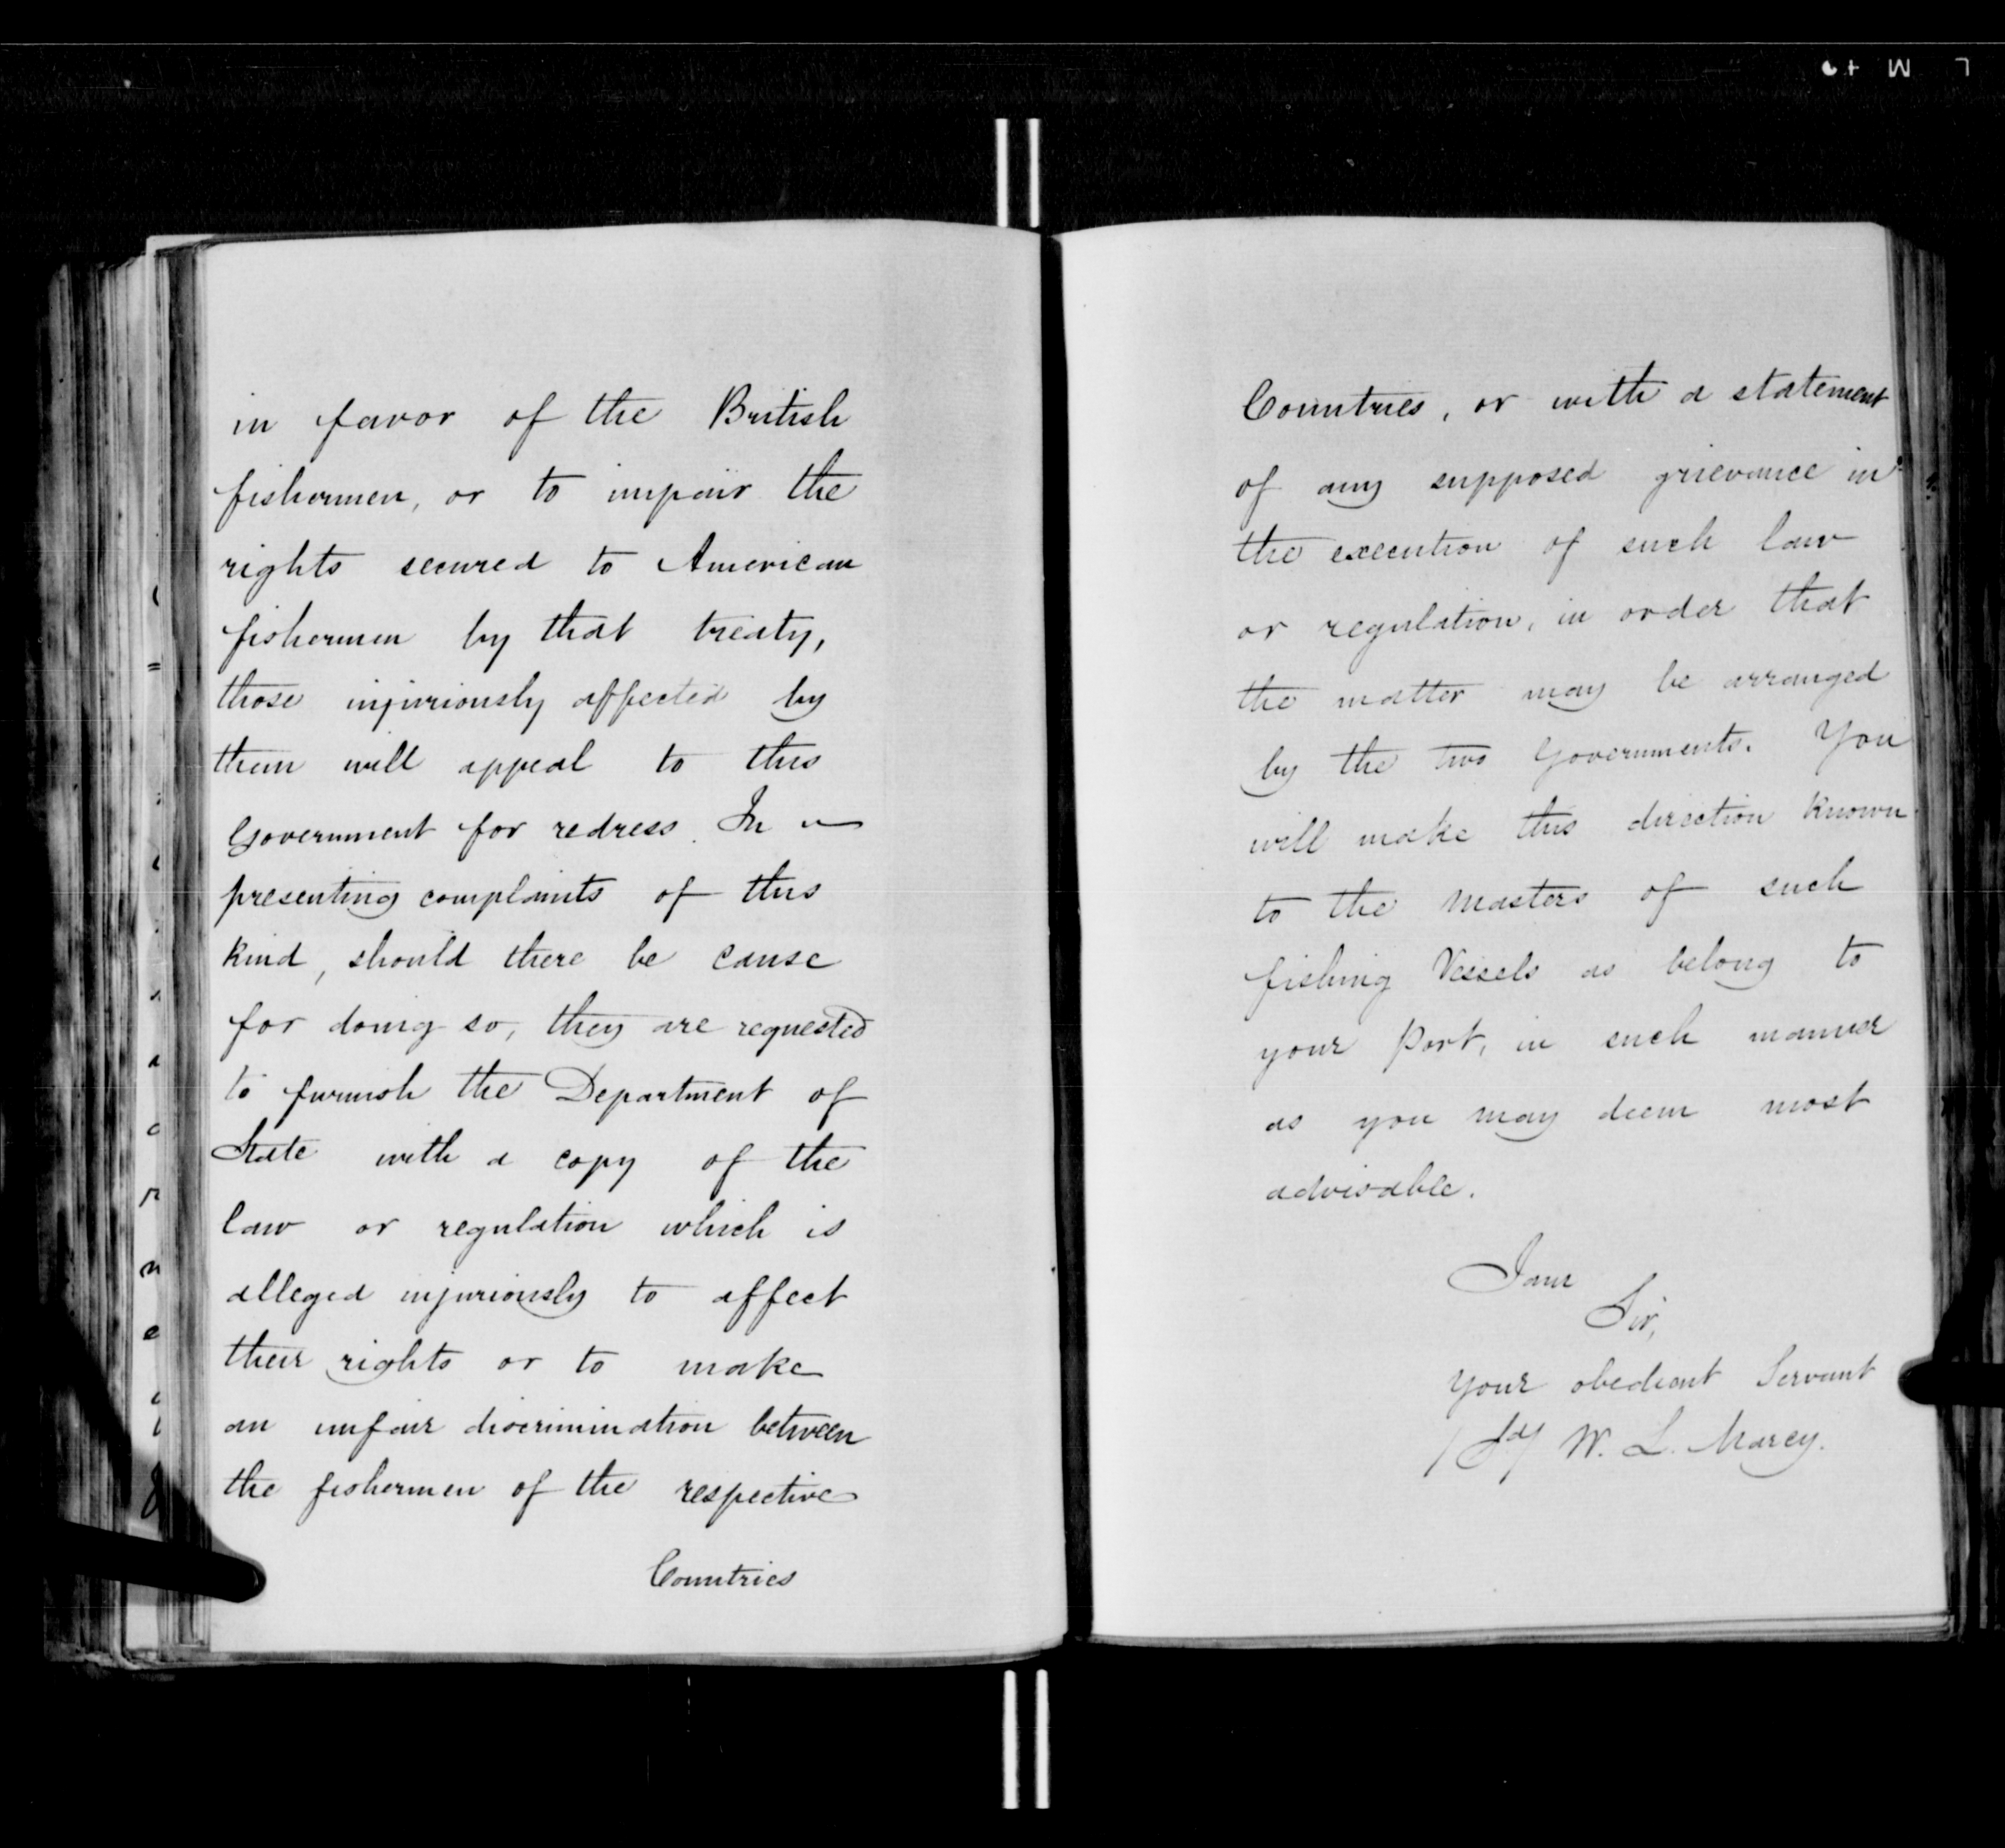 in favor of the British
fishermen, or to impair the
rights secured to American
fishermen by that treaty,
those injuriously affected by
them will appeal to this
Government for redress. In
presenting complaints of this
kind, should there be cause
for doing so, they are requested
to furnish the Department of
State with a copy of the
law or regulation which is
alleged injuriously to affect
their rights or to make
an unfair discrimination between
the fishermen of the respective
Countries
Countries, or with a statement
of any supposed grievance in
the execution of such law
or regulation, in order that
the matter may be arranged
by the two Governments. You
will make this direction known
to the Masters of such
fishing Vessels as belong to
your Port, in such manner
as you may deem most
advisable.
I am
Sir,
Your obedient Servant
/Sd/ W. L. Marcy.